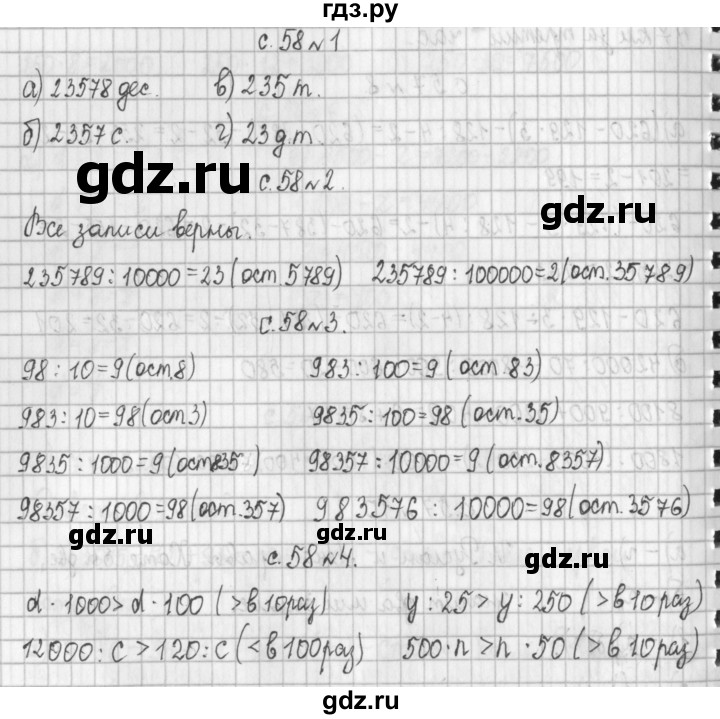 гдз.ру
с. 58 № 1
а) 23578 дес. в) 235 т.
б) 2357 с. г) 23 д.т.
gdz.ru
с. 58 № 2.
gdz.ru
Все записи верны.
235789 : 10000 = 23 (ост. 5789) 235789 : 100000 = 2 (ост. 35789)
gdz.ru
с. 58 № 3.
98 : 10 = 9 (ост. 8) 983 : 100 = 9 (ост. 83)
983 : 10 = 98 (ост. 3) 9835 : 100 = 98 (ост. 35)
gdz.ru
9835 : 1000 = 9 (ост 835) 98357 : 10000 = 9 (ост. 8357)
98357 : 1000 = 98 (ост. 357) 983576 : 10000 = 98 (ост. 3576)
gdz.ru
gdz.ru
с. 58 № 4.
gdz.ru
d · 1000 > d · 100 (> в 10 раз) у : 25 > у : 250 (> в 10 раз)
12000 : с > 120 : с (< в 100 раз) 500 · n > n · 50 (> в 10 раз)
gdz.ru